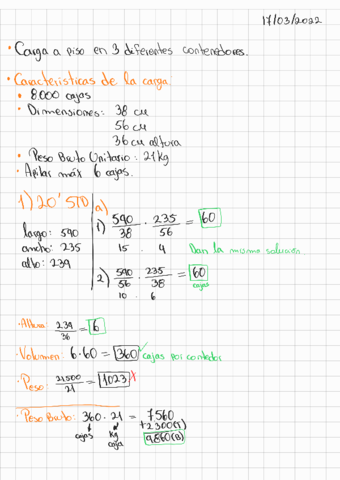 17/03/2022
• Carga a piso en 3 diferentes contenedores.
• Características de la carga:
• 8.000 cajas
• Dimensiones: 38 cm
56 cm
36 cm altura
• Peso Bruto Unitario: 21 kg
• Apilar máx 6 cajas.
1) 20' STD
largo: 590
ancho: 235
alto: 239
a)
1) 590/38 · 235/56 = 60
15 · 4
Dan la misma solución
2) 590/56 · 235/38 = 60
10 · 6 cajas
• Altura: 239/36 = 6
• Volumen: 6·60 = 360 ✓ cajas por contedor
• Peso: 21500/21 = 1023 X
• Peso Bruto: 360 · 21 = 7560
cajas kg/caja
+2300(T)
9.860(B)